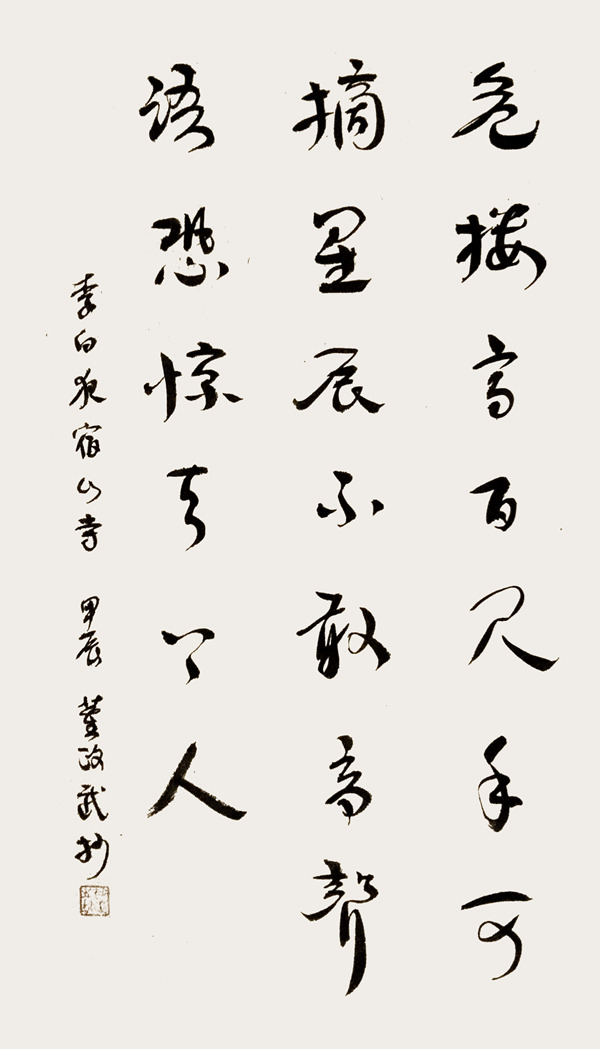 危楼高百尺手可
摘星辰不敢高聲
语恐惊天上人
李白夜宿山寺 甲辰 董政武抄